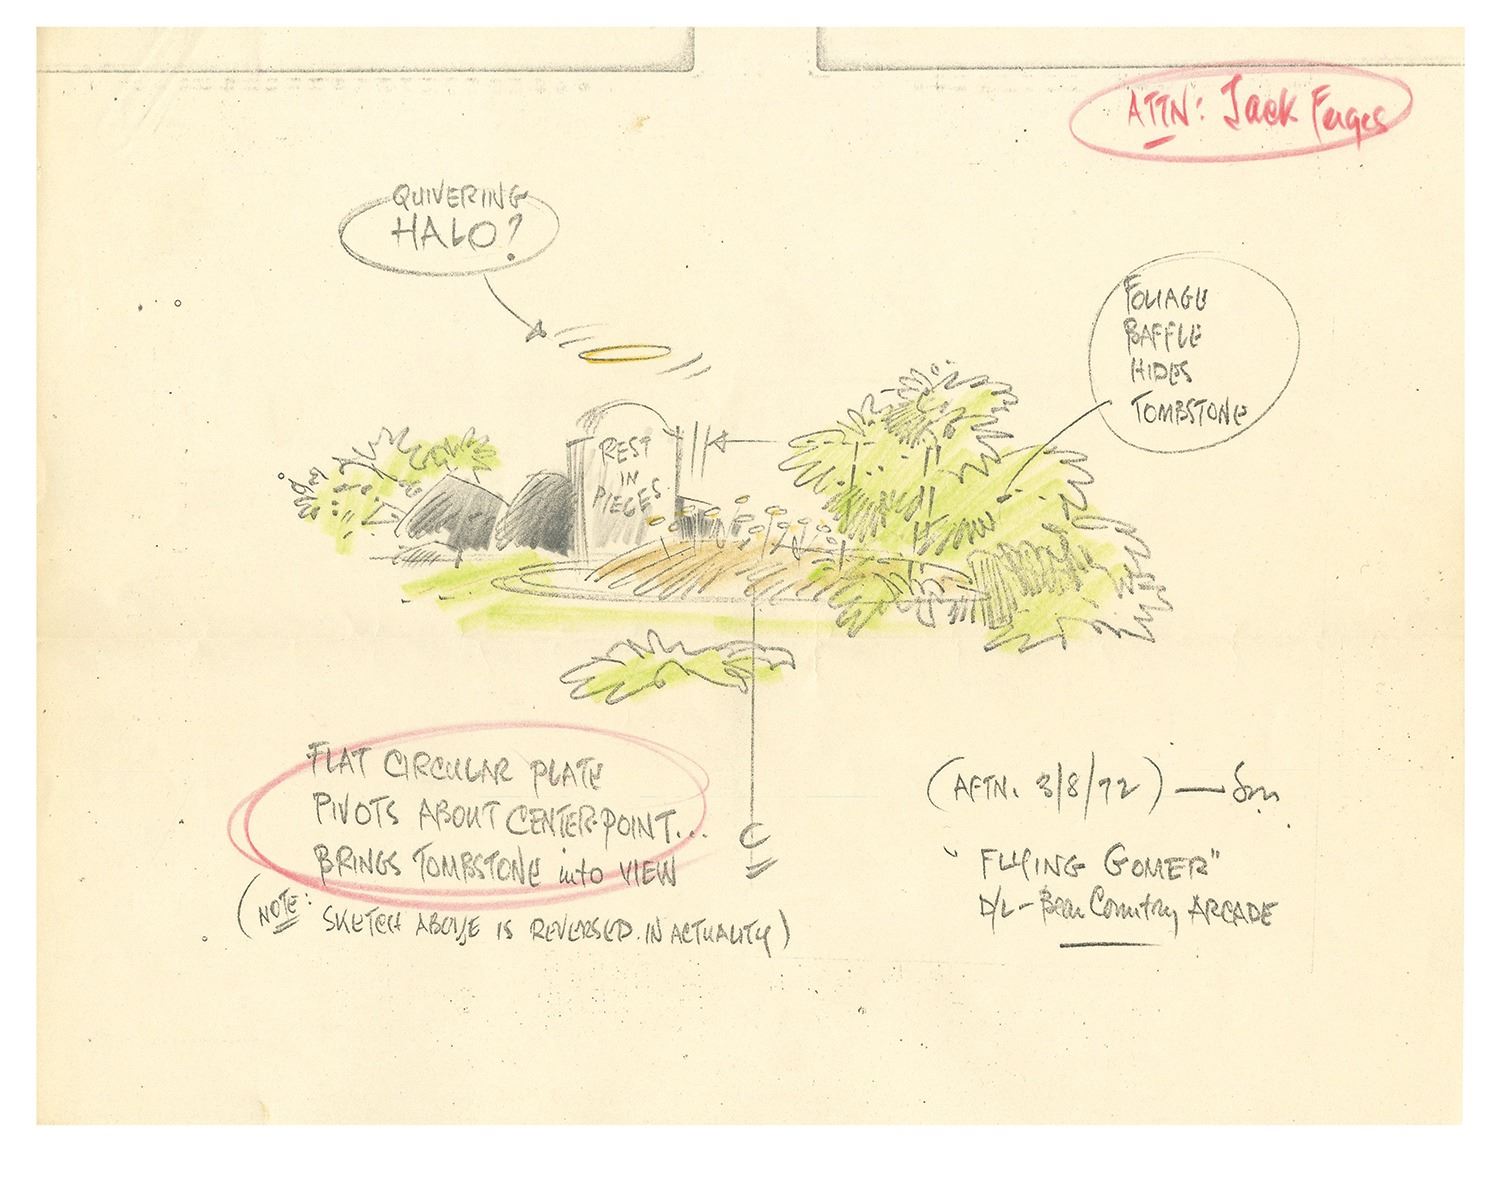 ATTN: Jack Ferges
QUIVERING
HALO?
FOLIAGE
BAFFLE
HIDES
TOMBSTONE
REST
IN
PIECES
FLAT CIRCULAR PLATE
PIVOTS ABOUT CENTER-POINT...
BRINGS TOMBSTONE into VIEW
(NOTE: SKETCH ABOVE IS REVERSED IN ACTUALITY)
C
(AFTN. 3/8/72) —
"FLYING GOMER"
D/L - Bear Country ARCADE